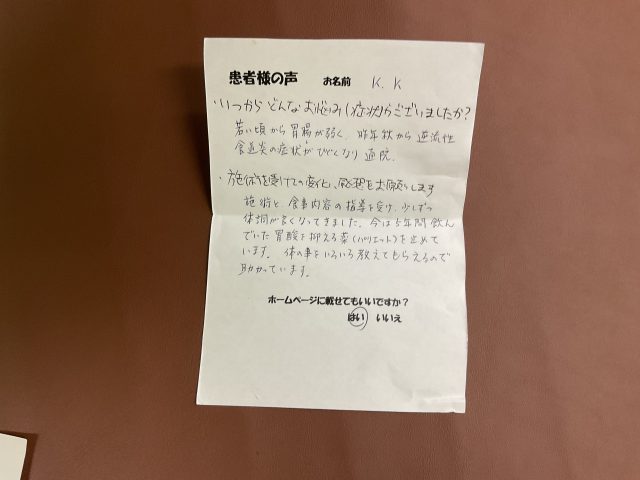 患者様の声 お名前 K.K
・いつからどんなお悩み(症状)がございましたか?
若い頃から胃腸が弱く、昨年秋から逆流性
食道炎の症状がひどくなり通院。
・施術を受けての変化、感想をお願いします
施術と、食事内容の指導を受け、少しずつ
体調が良くなってきました。今は5年間飲ん
でいた胃酸を抑える薬(パリエット)を止めて
います。体の事をいろいろ教えてもらえるので
助かっています。
ホームページに載せてもいいですか?
はい いいえ